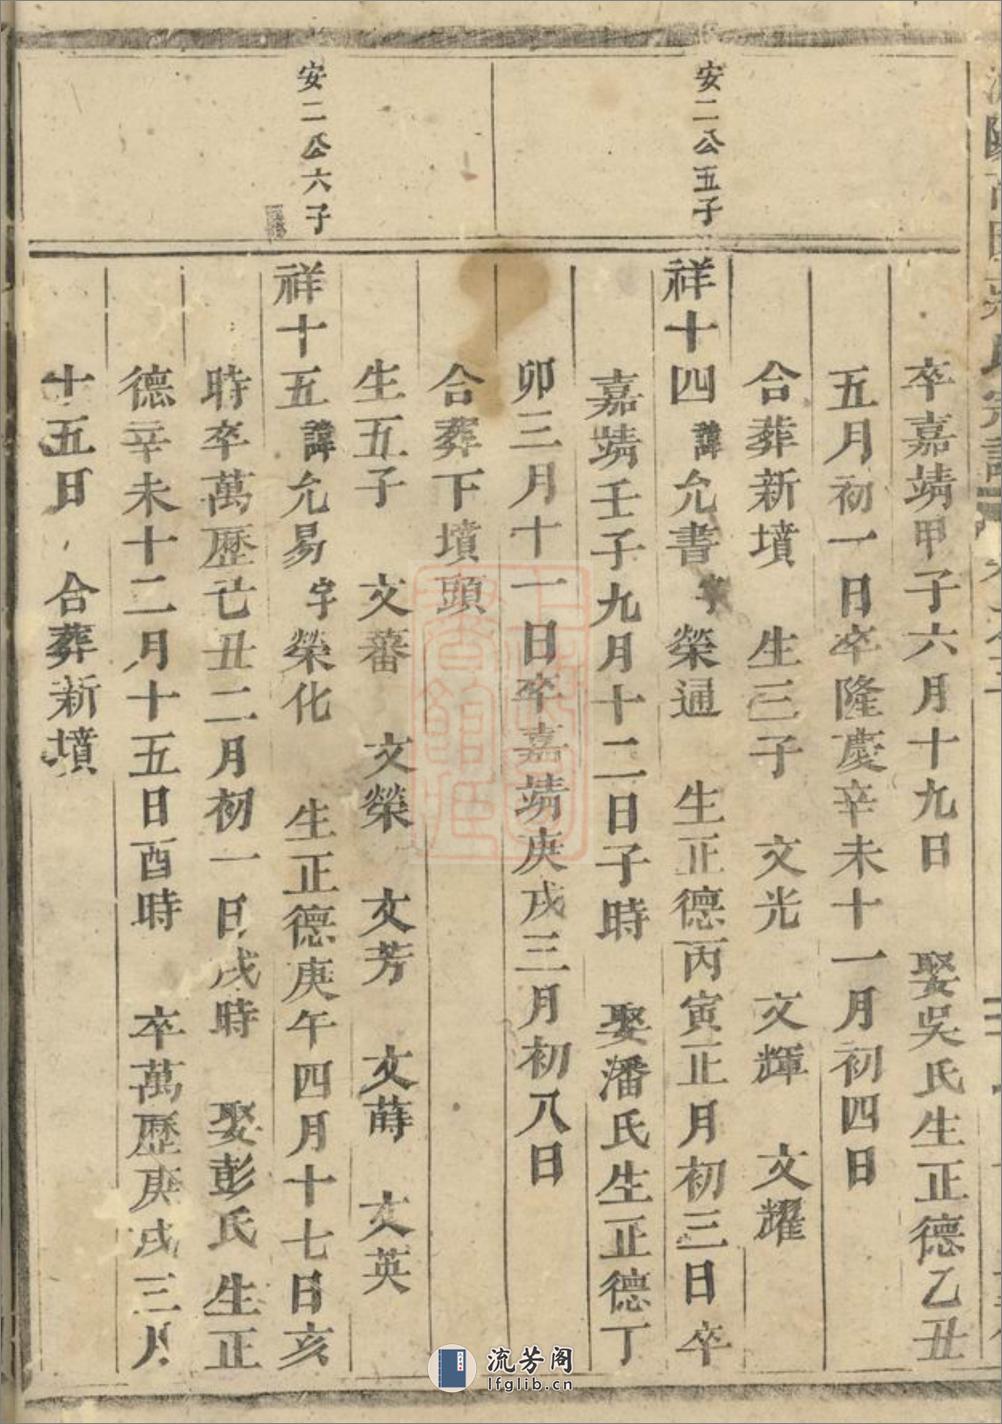 安二公五子
安二公六子
卒嘉靖甲子六月十九日 娶吳氏生正德乙丑
五月初一日卒隆慶辛未十一月初四日
合葬新墳 生三子 文光 文輝 文耀
祥十四 諱允書 字榮通 生正德丙寅正月初三日卒
嘉靖壬子九月十二日子時 娶潘氏生正德丁
卯三月十一日卒嘉靖庚戌三月初八日
合葬下墳頭
生五子 文蕃 文榮 文芳 文蒔 文英
祥十五 諱允易 字榮化 生正德庚午四月十七日亥
時卒萬歷己丑二月初一日戌時 娶彭氏生正
德辛未十二月十五日酉時 卒萬歷庚戌三月
十五日 合葬新墳
流芳阁
lfglib.cn